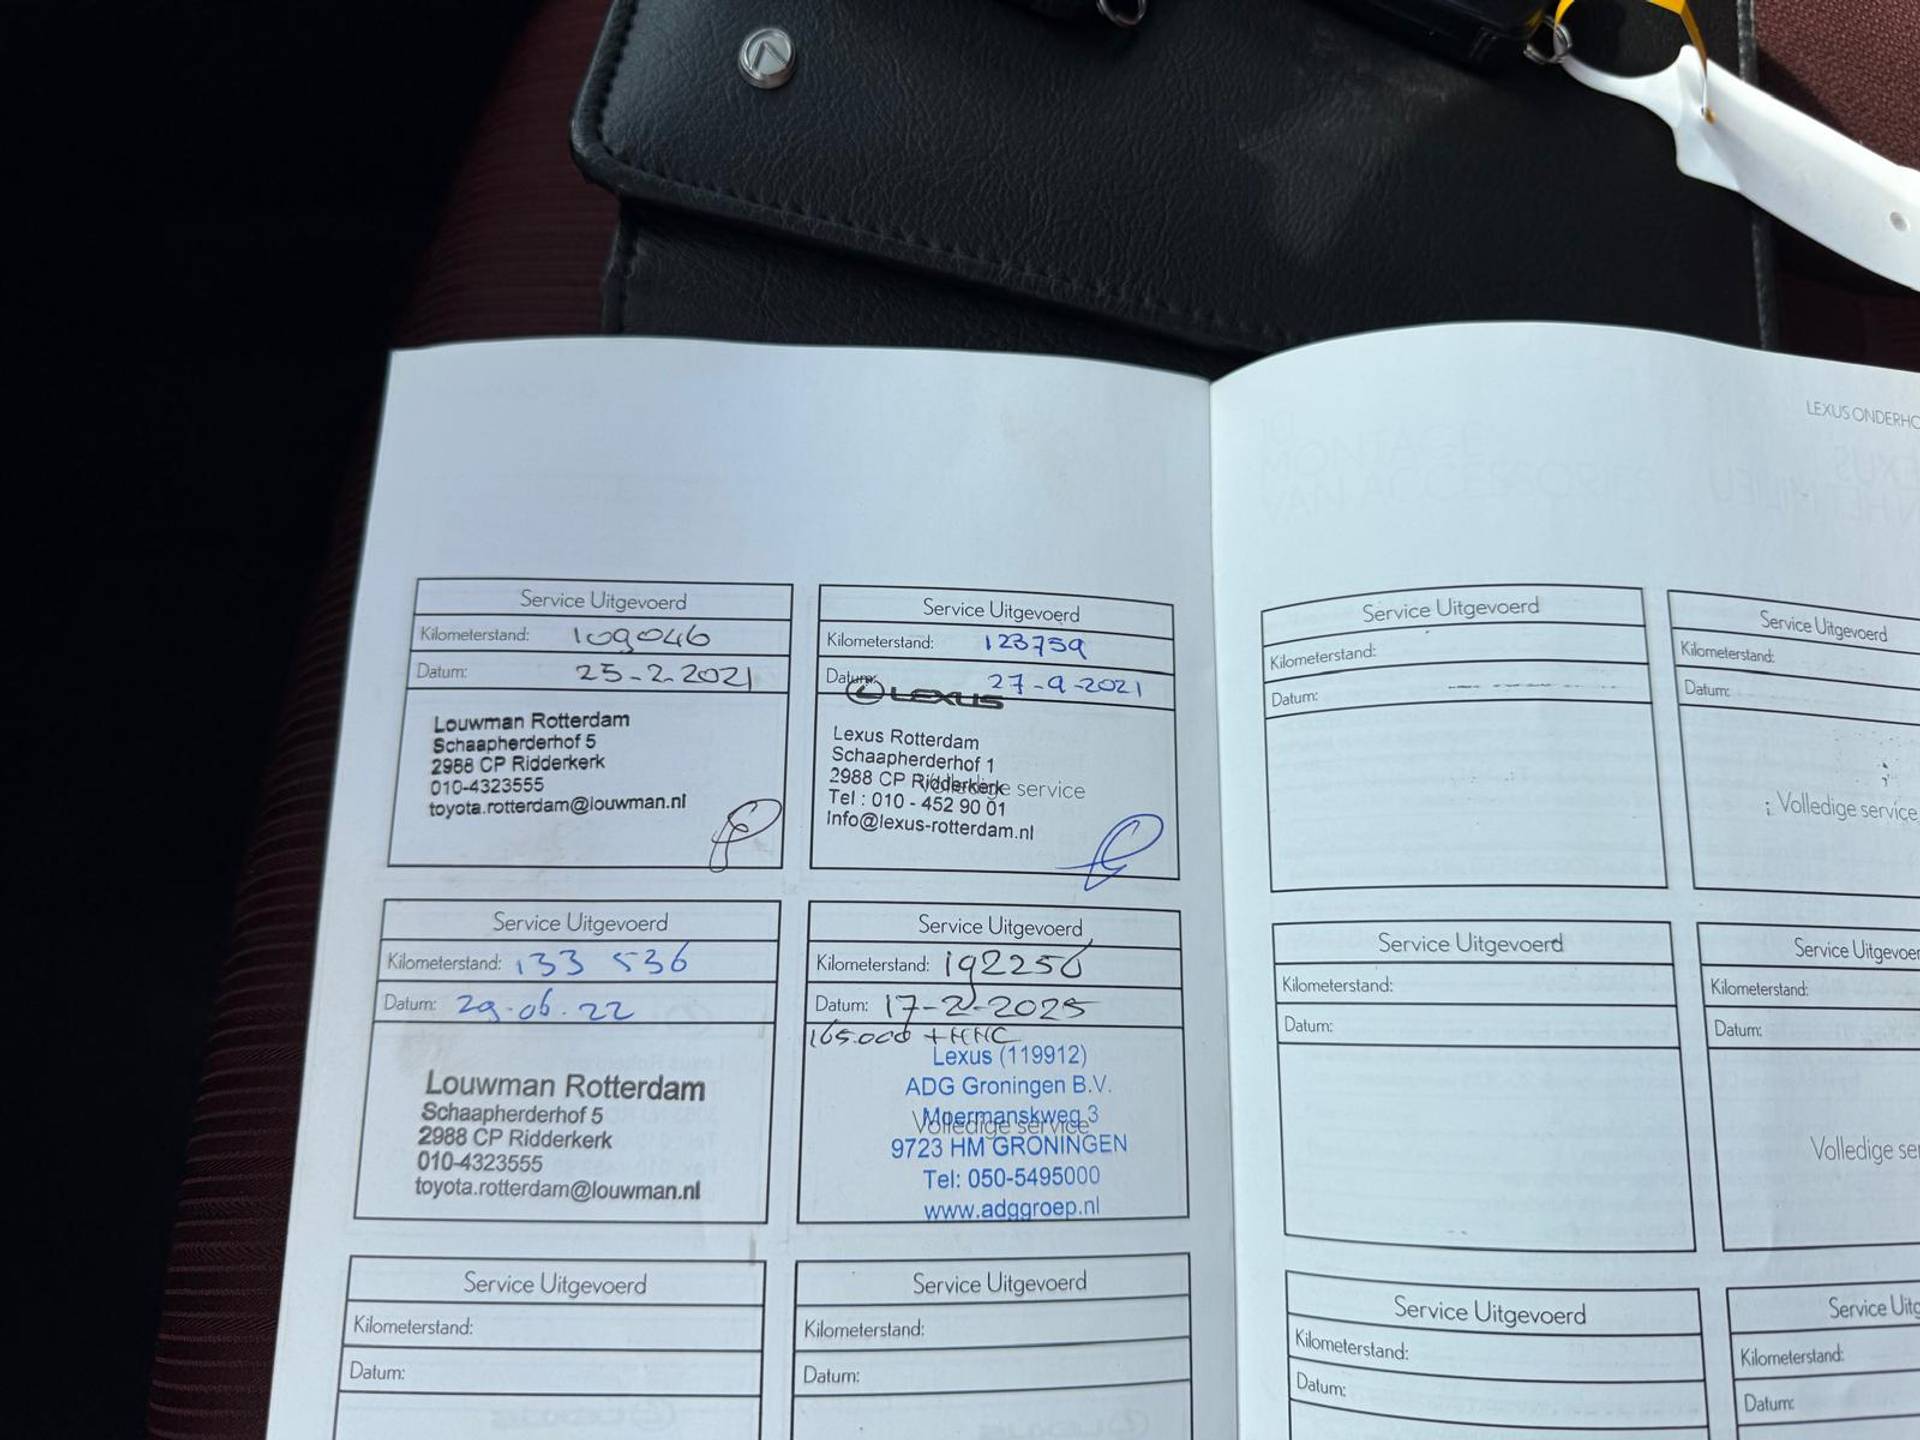 LEXUS ONDERHO
Service Uitgevoerd
Kilometerstand: 109046
Datum: 25-2-2021
Louwman Rotterdam
Schaapherderhof 5
2988 CP Ridderkerk
010-4323555
toyota.rotterdam@louwman.nl
Service Uitgevoerd
Kilometerstand: 123759
Datum: 27-9-2021
LEXUS
Lexus Rotterdam
Schaapherderhof 1
2988 CP Ridderkerk
Volledige service
Tel : 010 - 452 90 01
Info@lexus-rotterdam.nl
Service Uitgevoerd
Kilometerstand: 133 536
Datum: 29-06-22
Louwman Rotterdam
Schaapherderhof 5
2988 CP Ridderkerk
010-4323555
toyota.rotterdam@louwman.nl
Service Uitgevoerd
Kilometerstand: 192256
Datum: 17-2-2025
165.000 +
Lexus (119912)
ADG Groningen B.V.
Moermanskweg 3
Volledige service
9723 HM GRONINGEN
Tel: 050-5495000
www.adggroep.nl
Service Uitgevoerd
Kilometerstand:
Datum:
Service Uitgevoerd
Kilometerstand:
Datum:
Service Uitgevoerd
Kilometerstand:
Datum:
Service Uitgevoerd
Kilometerstand:
Datum:
Volledige service
Service Uitgevoerd
Kilometerstand:
Datum:
Service Uitgevoer
Kilometerstand:
Datum:
Volledige ser
Service Uitgevoerd
Kilometerstand:
Datum:
Service Uitg
Kilometerstand:
Datum: